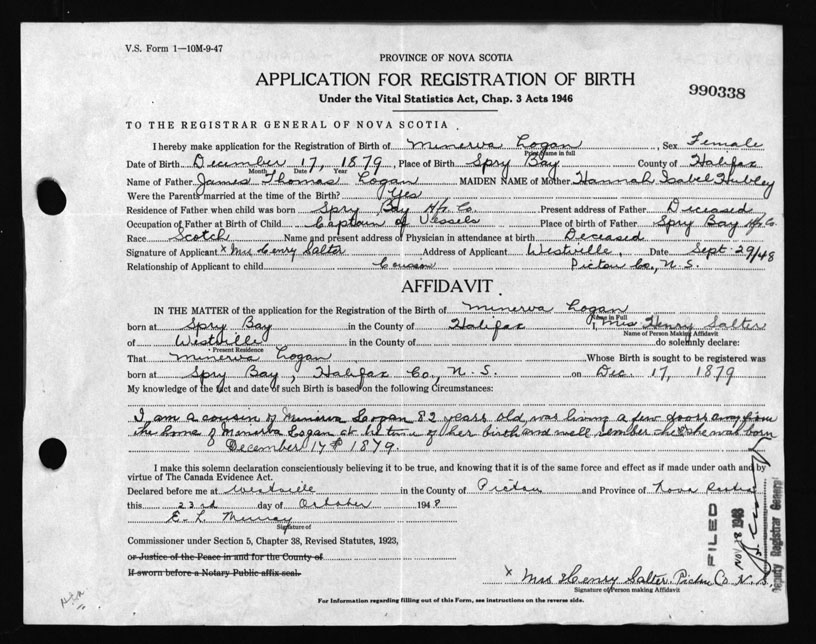 V.S. Form 1—10M-9-47
PROVINCE OF NOVA SCOTIA
APPLICATION FOR REGISTRATION OF BIRTH
990338
Under the Vital Statistics Act, Chap. 3 Acts 1946
TO THE REGISTRAR GENERAL OF NOVA SCOTIA
I hereby make application for the Registration of Birth of Minerva Logan, Sex Female
Print Name in full
Date of Birth December 17, 1879, Place of Birth Spry Bay County of Halifax
Month Date Year
Name of Father James Thomas Logan MAIDEN NAME of Mother Hannah Isabel Hubley
Were the Parents married at the time of the Birth? Yes
Residence of Father when child was born Spry Bay Hfx. Co. Present address of Father Deceased
Occupation of Father at Birth of Child Captain of Vessels Place of birth of Father Spry Bay Hfx Co.
Race Scotch Name and present address of Physician in attendance at birth Deceased
Signature of Applicant x Mrs Henry Salter Address of Applicant Westville, Date Sept. 29/48
Relationship of Applicant to child Cousin Pictou Co., N.S.
AFFIDAVIT
IN THE MATTER of the application for the Registration of the Birth of Minerva Logan
Name in Full
born at Spry Bay in the County of Halifax I, Mrs Henry Salter
Name of Person Making Affidavit
of Westville in the County of do solemnly declare:
Present Residence
That Minerva Logan Whose Birth is sought to be registered was
born at Spry Bay, Halifax Co., N.S. on Dec. 17, 1879
My knowledge of the fact and date of such Birth is based on the following Circumstances:
I am a cousin of Minerva Logan 82 years old, was living a few doors away from
the home of Minerva Logan at the time of her birth and well remember that she was born
December 17 1879.
I make this solemn declaration conscientiously believing it to be true, and knowing that it is of the same force and effect as if made under oath and by
virtue of The Canada Evidence Act.
Declared before me at Westville in the County of Pictou and Province of Nova Scotia
this 23rd day of October 1948
E. L. Murray
Signature of
Commissioner under Section 5, Chapter 38, Revised Statutes, 1923,
or Justice of the Peace in and for the County of
If sworn before a Notary Public affix seal.
FILED
NOV 8 1948
Deputy Registrar General
x Mrs Henry Salter Pictou Co N.S.
Signature of Person making Affidavit
For Information regarding filling out of this Form, see instructions on the reverse side.